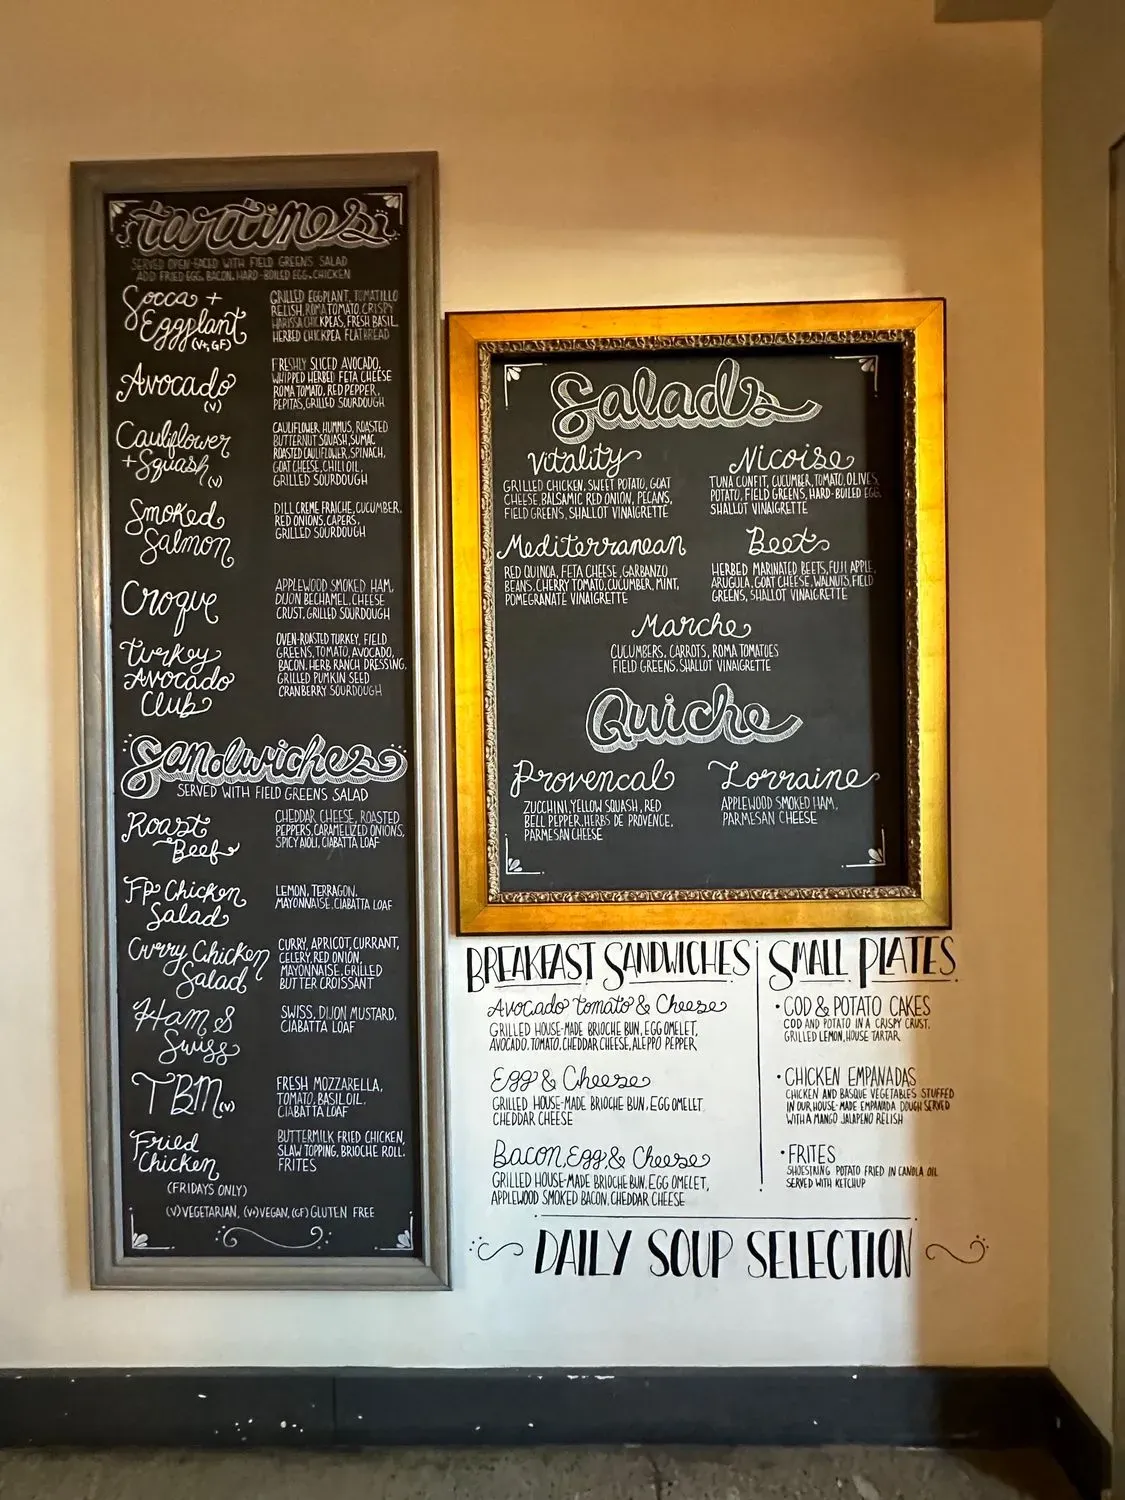 tartines
SERVED OPEN-FACED WITH FIELD GREENS SALAD
ADD FRIED EGG, BACON, HARD-BOILED EGG, CHICKEN
Socca +
Eggplant
(V+, GF)
GRILLED EGGPLANT, TOMATILLO
RELISH, ROMA TOMATO, CRISPY
HARISSA CHICKPEAS, FRESH BASIL
HERBED CHICKPEA FLATBREAD
Avocado
(V)
FRESHLY SLICED AVOCADO,
WHIPPED HERBED FETA CHEESE
ROMA TOMATO, RED PEPPER,
PEPITAS, GRILLED SOURDOUGH
Cauliflower
+ Squash
(V)
CAULIFLOWER HUMMUS, ROASTED
BUTTERNUT SQUASH, SUMAC
ROASTED CAULIFLOWER, SPINACH,
GOAT CHEESE, CHILI OIL,
GRILLED SOURDOUGH
Smoked
Salmon
DILL CREME FRAICHE, CUCUMBER,
RED ONIONS, CAPERS,
GRILLED SOURDOUGH
Croque
APPLEWOOD SMOKED HAM,
DIJON BECHAMEL, CHEESE
CRUST, GRILLED SOURDOUGH
Turkey
Avocado
Club
OVEN-ROASTED TURKEY, FIELD
GREENS, TOMATO, AVOCADO,
BACON, HERB RANCH DRESSING,
GRILLED PUMKIN SEED
CRANBERRY SOURDOUGH
Sandwiches
SERVED WITH FIELD GREENS SALAD
Roast
Beef
CHEDDAR CHEESE, ROASTED
PEPPERS, CARAMELIZED ONIONS,
SPICY AIOLI, CIABATTA LOAF
FP Chicken
Salad
LEMON, TERRAGON,
MAYONNAISE, CIABATTA LOAF
Curry Chicken
Salad
CURRY, APRICOT, CURRANT,
CELERY, RED ONION,
MAYONNAISE, GRILLED
BUTTER CROISSANT
Ham &
Swiss
SWISS, DIJON MUSTARD,
CIABATTA LOAF
TBM (V)
FRESH MOZZARELLA,
TOMATO, BASIL OIL,
CIABATTA LOAF
Fried
Chicken
(FRIDAYS ONLY)
BUTTERMILK FRIED CHICKEN,
SLAW TOPPING, BRIOCHE ROLL.
FRITES
(V) VEGETARIAN, (V+) VEGAN, (GF) GLUTEN FREE
Salads
Vitality
GRILLED CHICKEN, SWEET POTATO, GOAT
CHEESE, BALSAMIC RED ONION, PECANS,
FIELD GREENS, SHALLOT VINAIGRETTE
Nicoise
TUNA CONFIT, CUCUMBER, TOMATO, OLIVES,
POTATO, FIELD GREENS, HARD-BOILED EGG,
SHALLOT VINAIGRETTE
Mediterranean
RED QUINOA, FETA CHEESE, GARBANZO
BEANS, CHERRY TOMATO, CUCUMBER, MINT,
POMEGRANATE VINAIGRETTE
Beet
HERBED MARINATED BEETS, FUJI APPLE,
ARUGULA, GOAT CHEESE, WALNUTS, FIELD
GREENS, SHALLOT VINAIGRETTE
Marche
CUCUMBERS, CARROTS, ROMA TOMATOES
FIELD GREENS, SHALLOT VINAIGRETTE
Quiche
Provencal
ZUCCHINI, YELLOW SQUASH, RED
BELL PEPPER, HERBS DE PROVENCE,
PARMESAN CHEESE
Lorraine
APPLEWOOD SMOKED HAM,
PARMESAN CHEESE
BREAKFAST SANDWICHES
Avocado Tomato & Cheese
GRILLED HOUSE-MADE BRIOCHE BUN, EGG OMELET,
AVOCADO, TOMATO, CHEDDAR CHEESE, ALEPPO PEPPER
Egg & Cheese
GRILLED HOUSE-MADE BRIOCHE BUN, EGG OMELET
CHEDDAR CHEESE
Bacon, Egg & Cheese
GRILLED HOUSE-MADE BRIOCHE BUN, EGG OMELET,
APPLEWOOD SMOKED BACON, CHEDDAR CHEESE
SMALL PLATES
• COD & POTATO CAKES
COD AND POTATO IN A CRISPY CRUST,
GRILLED LEMON, HOUSE TARTAR
• CHICKEN EMPANADAS
CHICKEN AND BASQUE VEGETABLES STUFFED
IN OUR HOUSE-MADE EMPANADA DOUGH SERVED
WITH A MANGO JALAPENO RELISH
• FRITES
SHOESTRING POTATO FRIED IN CANOLA OIL
SERVED WITH KETCHUP
DAILY SOUP SELECTION